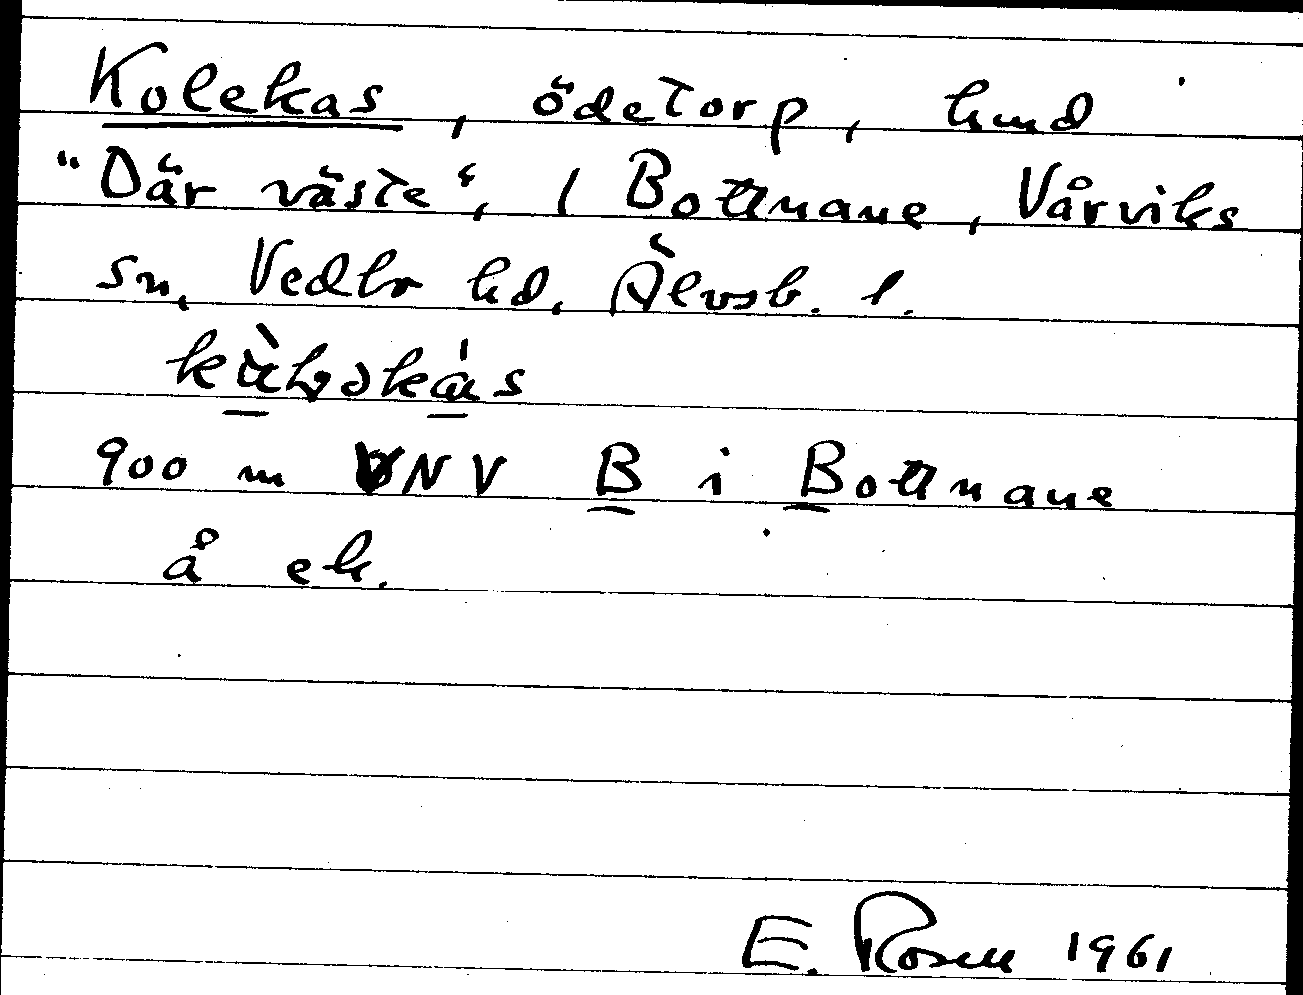 Kolekas, ödetorp, hmd
"Där väste", / Bottnane, Vårviks
sn, Vedbo hd, Älvsb. l.
900 m VNV B i Bottnane
å ek.
E. Rosell 1961